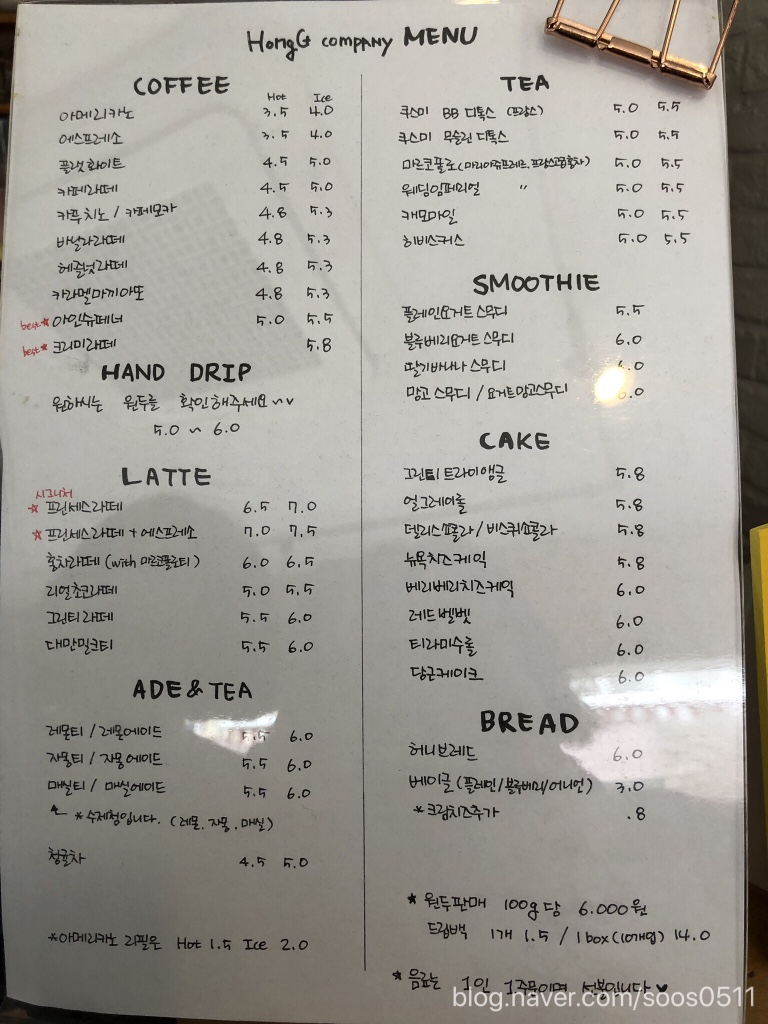 HongG company MENU
COFFEE
Hot Ice
아메리카노 3.5 4.0
에스프레소 3.5 4.0
플랫화이트 4.5 5.0
카페라떼 4.5 5.0
카푸치노 / 카페모카 4.8 5.3
바닐라라떼 4.8 5.3
헤즐넛라떼 4.8 5.3
카라멜마끼아또 4.8 5.3
best ★ 아인슈페너 5.0 5.5
best ★ 크리미라떼 5.8
HAND DRIP
원하시는 원두를 확인해주세요~♥
5.0 ~ 6.0
LATTE
시그니처
★ 프린세스라떼 6.5 7.0
★ 프린세스라떼 + 에스프레소 7.0 7.5
홍차라떼 (with 마르코폴로티) 6.0 6.5
리얼초코라떼 5.0 5.5
그린티라떼 5.5 6.0
대만밀크티 5.5 6.0
ADE & TEA
레몬티 / 레몬에이드 5.5 6.0
자몽티 / 자몽에이드 5.5 6.0
매실티 / 매실에이드 5.5 6.0
* 수제청입니다. (레몬, 자몽, 매실)
청귤차 4.5 5.0
*아메리카노 리필은 Hot 1.5 Ice 2.0
TEA
쿠스미 BB 디톡스 (프랑스) 5.0 5.5
쿠스미 무슬린 디톡스 5.0 5.5
마르코폴로 (마리아쥬프레르, 프랑스고급홍차) 5.0 5.5
웨딩임페리얼 〃 5.0 5.5
캐모마일 5.0 5.5
히비스커스 5.0 5.5
SMOOTHIE
플레인요거트스무디 5.5
블루베리요거트스무디 6.0
딸기바나나 스무디 .0
망고스무디 / 요거트망고스무디 .0
CAKE
그린티트라이앵글 5.8
얼그레이롤 5.8
델리스쇼콜라 / 비스퀴쇼콜라 5.8
뉴욕치즈케익 5.8
베리베리치즈케익 6.0
레드벨벳 6.0
티라미수롤 6.0
당근케이크 6.0
BREAD
허니브레드 6.0
베이글 (플레인/블루베리/어니언) 3.0
* 크림치즈추가 .8
★ 원두판매 100g당 6.000원
드립백 1개 1.5 / 1box (10개입) 14.0
* 음료는 1인 1주문이며 선불입니다♥
blog.naver.com/soos0511